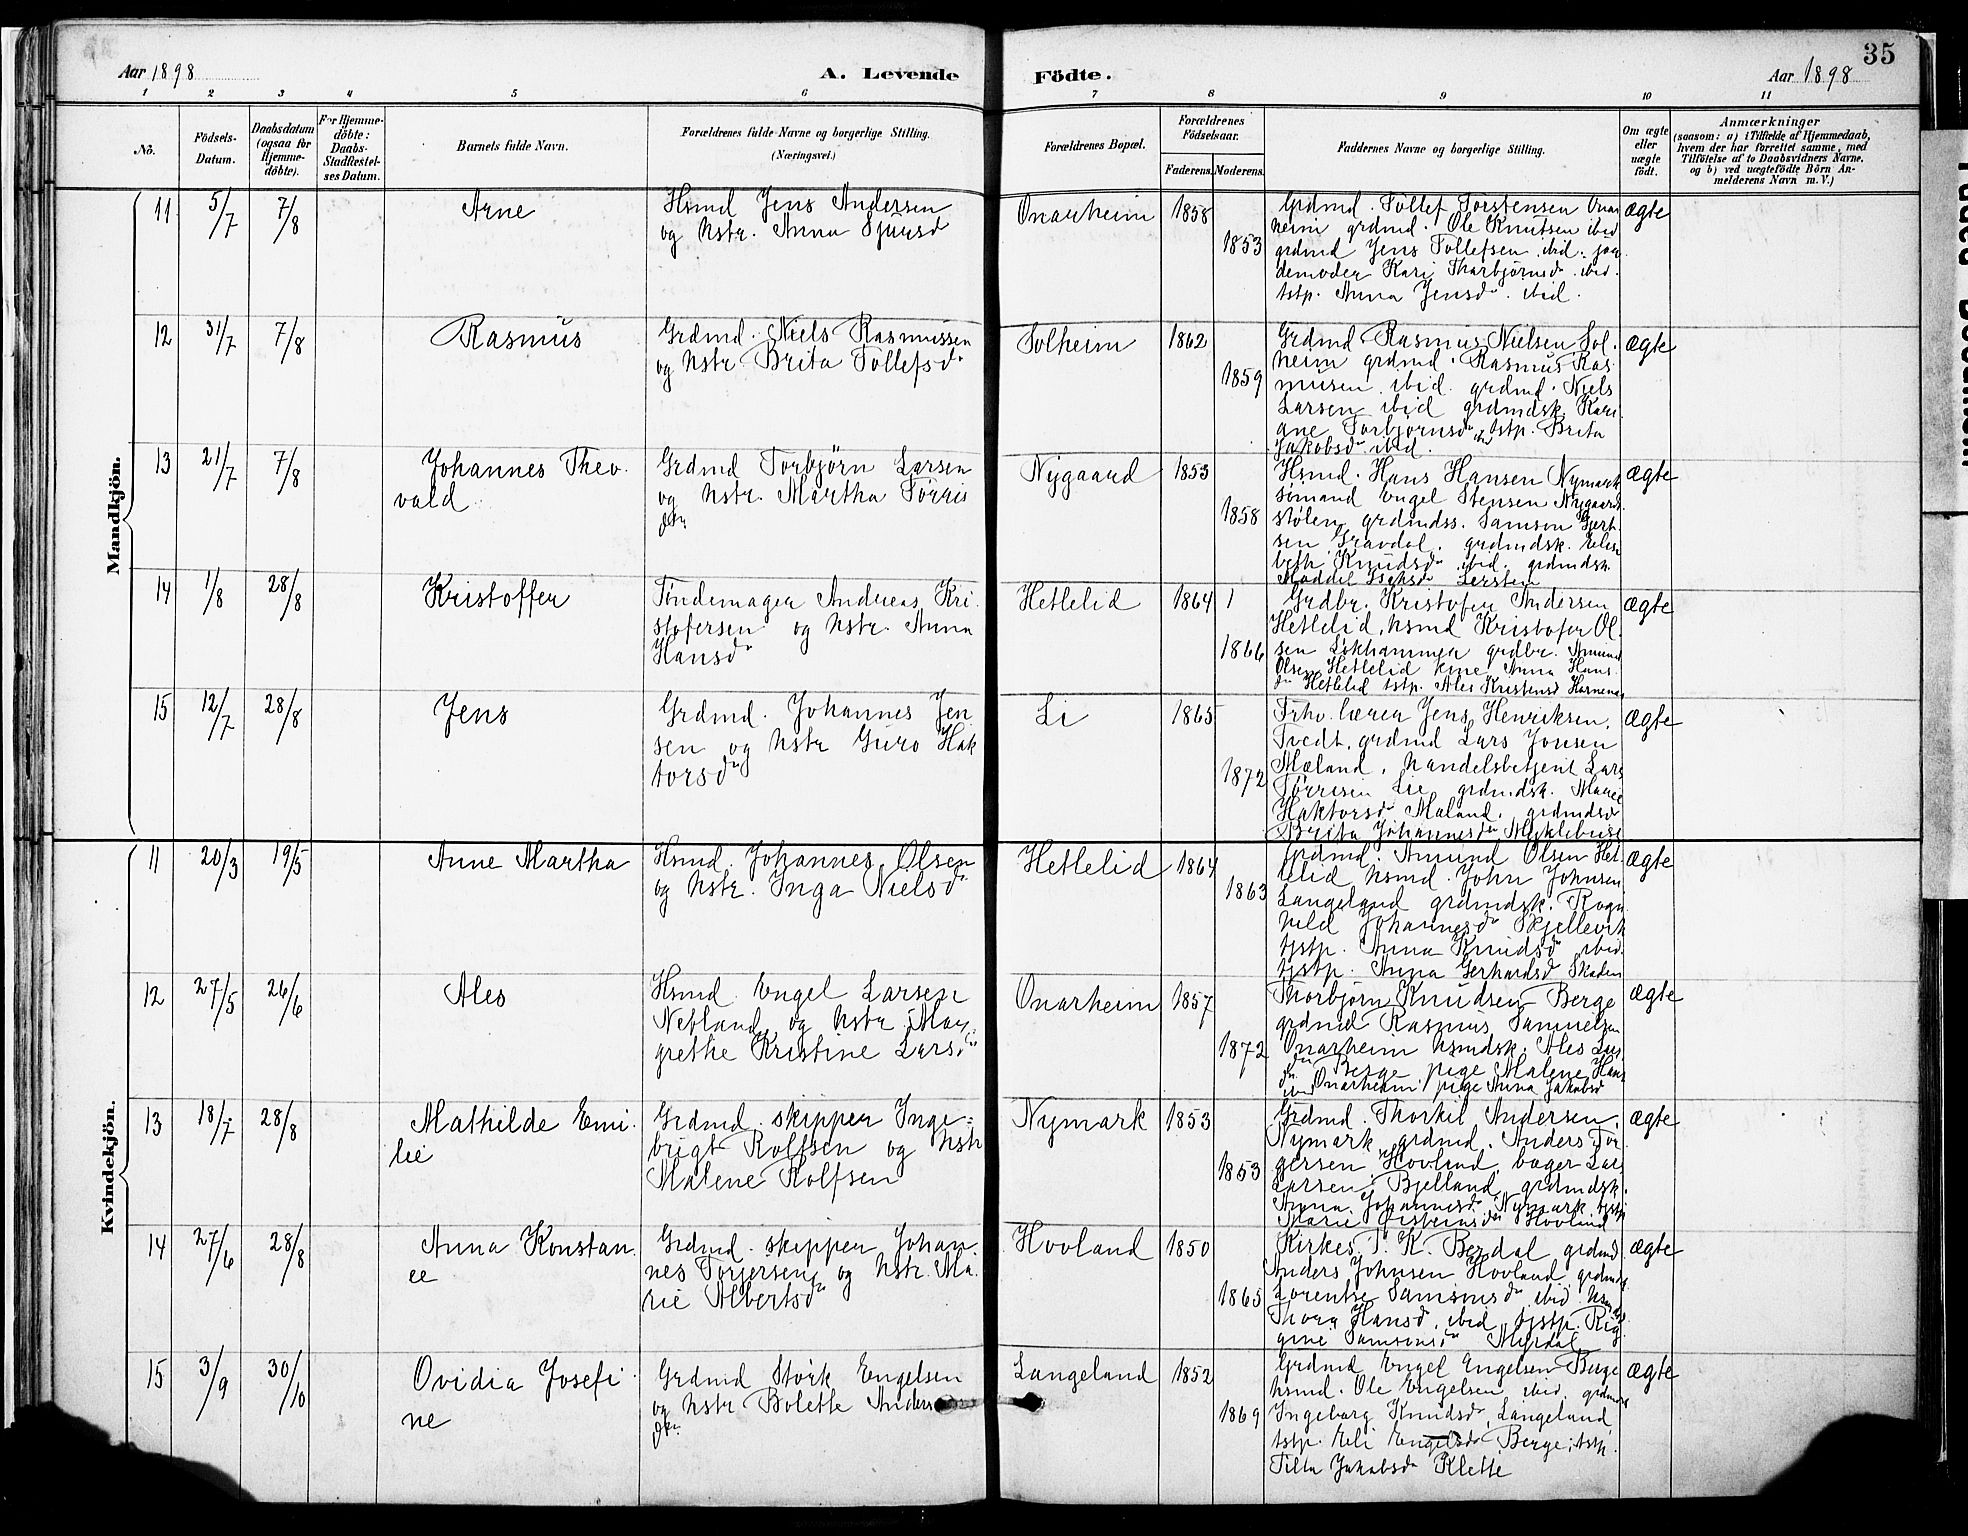 35
Aar 1898
A. Levende
Födte.
Aar 1898
1 2 3 4 5 6 7 8 9 10 11
No.
Födsels-
Datum.
Daabsdatum
(ogsaa for
Hjemme-
döbte).
For Hjemme-
döbte:
Daabs-
Stadfæstel-
ses Datum.
Barnets fulde Navn.
Forældrenes fulde Navne og borgerlige Stilling.
(Næringsvei.)
Forældrenes Bopæl.
Forældrenes
Födselsaar.
Faderens. Moderens.
Faddernes Navne og borgerlige Stilling.
Om ægte
eller
uægte
födt.
Anmærkninger
(saasom: a) i Tilfælde af Hjemmedaab,
hvem der har forrettet samme, med
Tilföielse af to Daabsvidners Navne,
og b) ved uægtefödte Börn An-
melderens Navn m. V.)
Mandkjön.
11 5/7 7/8 Arne
Hsmd Jens Andersen
og hstr. Anna Sjursd
Onarheim 1858
1853
Grdmd. Tollef Torstensen Onar
heim grdmd. Ole Knutsen ibid
grdmd Jens Tollefsen ibid. jor
demoder Kari Tharbjørnsd. ibid.
tstp. Anna Jensd. ibid.
ægte
12 31/7 7/8 Rasmus
Grdmd. Niels Rasmussen
og hstr. Brita Tollefsd
Solheim 1862
1859
Grdmd Rasmus Nielsen Sol.
heim grdmd. Rasmus Ras
musen ibid. grdmd. Niels
Larsen ibid grdmdsk. Kari
ane Torbjornsd ibid tstp. Brita
Jakobsd ibid.
ægte
13 21/7 7/8 Johannes Theo.
vald
Grdmd Torbjörn Larsen
og hstr. Martha Törris
dtr.
Nygaard 1853
1858
Hsmd. Hans Hansen Nymark
sømand Engel Stensen Nygaards
stølen grdmdss. Samson Gjert
sen Gravdal. grdmdsk. Elisa
beth Knudsd ibid. grdmdsk.
ægte
14 1/8 28/8 Kristoffer
Tøndemager Andreas Kri
stofersen og hstr. Anna
Hansd
Hetlelid 1864 1
1866
Grdbr. Kristofer Andersen
Hetlelid, hsmd Kristofer Ol.
sen Eskhammer grdbr. Amund
Olsen Hetlelid kone Anna Hans
dtr Hetlelid tstp. Ales Kristensd
ægte
15 12/7 28/8 Jens
Grdmd. Johannes Jen
sen og hstr Guro Hak
torsd
Li 1865
1872
Frhv. lærer Jens Henriksen,
Tvedt, grdmd Lars Jonsen
Mæland, handelsbetjent Lars
Tørrisen Lie grdmdsk. Marie
Haktorsd Mæland. grdmdsd
Brita Johannesd Myklebust
ægte
Kvindekjön.
11 20/3 19/5 Anne Martha
Hsmd. Johannes Olsen
og hstr. Inga Nielsd
Hetlelid 1864
1863
Grdmd. Amund Olsen Het
lelid hsmd. John Johnsen
Langeland grdmdsk. Ragn
hild Johannesd Skjellevik
tjstp. Anna Knudsd ibid.
tjstp. Anna Gerhardsd Skaden
ægte
12 27/5 26/6 Ales
Hsmd. Engel Larsen
Netland og hstr Mar
grethe Kristine Larsd
Onarheim 1857
1872
Thorbjörn Knudsen Berge
grdmd Rasmus Samuelsen
Onarheim hsmdsk. Ales Lars
dtr Berge pige Malene Hans
dtr Onarheim pige Anna Jakobsd
ibid
ægte
13 18/7 28/8 Mathilde Emi.
lie
Grdmd. skipper Inge-
brigt Rolfsen og hstr
Malene Rolfsen
Nymark 1853
1853
Grdmd. Thorkil Andersen,
Nymark, grdmd. Anders Tor
gersen Hovland, bager Lars
Larsen Bjelland, grdmdsk.
Anna Johannesd Nymark tjstp
Marie Hovland
ægte
14 27/6 28/8 Anna Konstan.
ce
Grdmd. skipper Johan
nes Torjersen og hstr. Ma.
rie Albertsd
Hovland 1850
1865
Kirkes. T. K. Berdal grdmd
Anders Johnsen Hovland, grdmds.
Lorentse Samsonsd ibid. hsmdsk
Thora Hansd. ibid tjstp. Reg
gine Samsonsd Myrdal
ægte
15 3/9 30/10 Ovidia Josefi.
ne
Grdmd Størk Engelsen
og hstr Bolette Anders
dtr.
Langeland 1852
1869
Grdmd Engel Engelsen Berge
hsmd. Ole Engelsen ibid. grdmds
Ingeborg Knudsd, Langeland,
tstp. Eli Engelsd Berge, tstp.
Tilla Jakobsd Klette
ægte